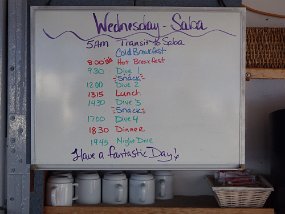 Wednesday - Saba
5AM Transit to Saba
Cold Breakfast
8:00 Hot Breakfast
930 Dive 1
Snacks
1200 Dive 2
1315 Lunch
1430 Dive 3
Snacks
1700 Dive 4
1830 Dinner
1945 Night Dive
Have a fantastic Day!